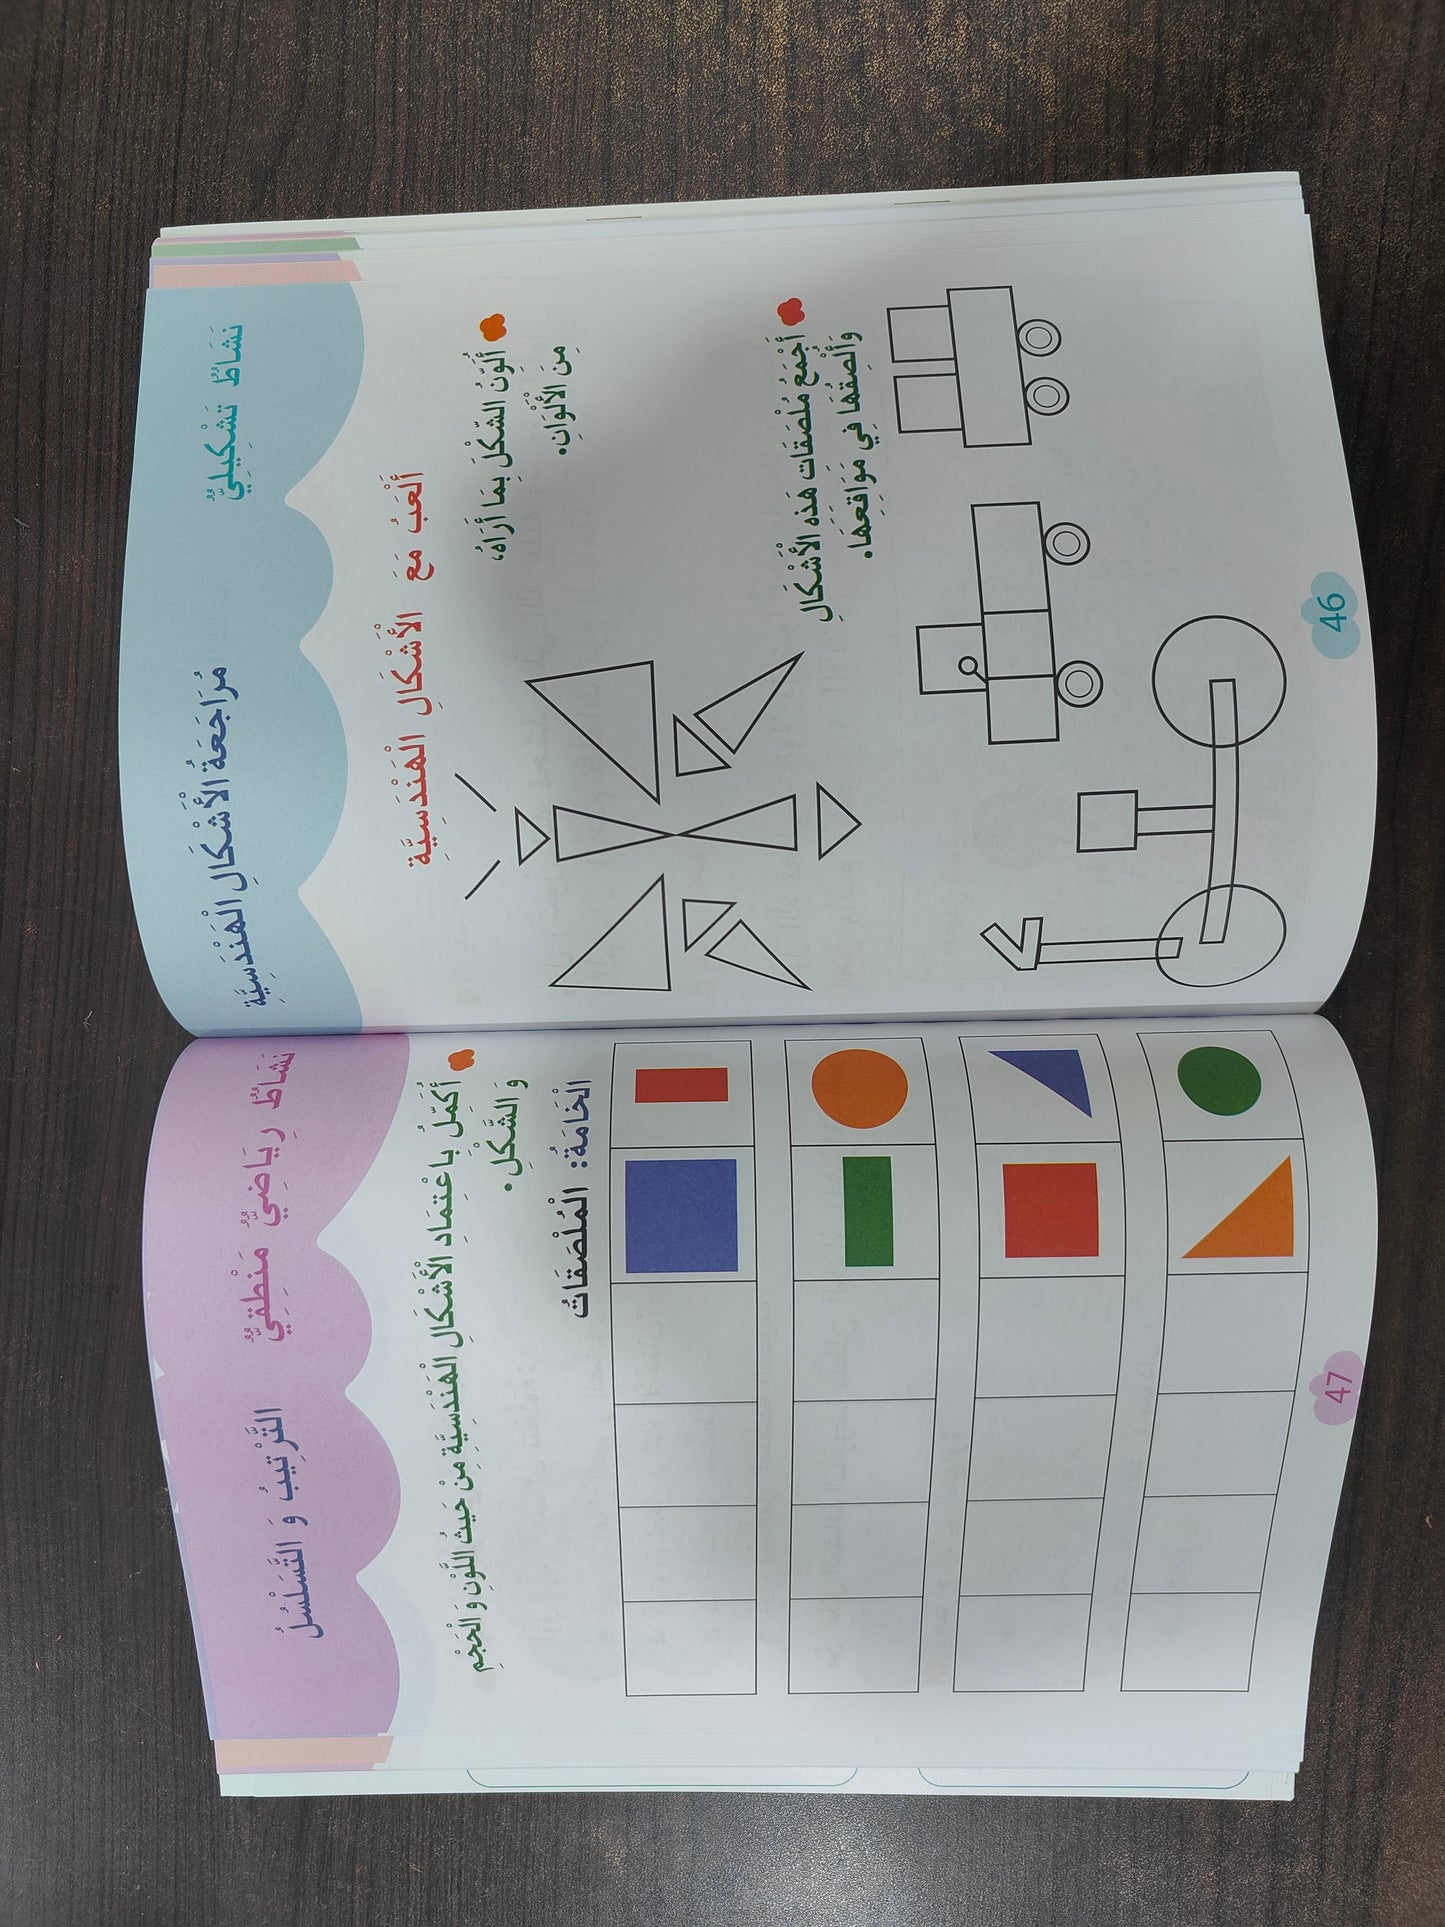 نَشَاطٌ تَشْكِيلِيٌّ
مُرَاجَعَةُ الْأَشْكَالِ الْهَنْدَسِيَّةِ
أَلْعَبُ مَعَ الْأَشْكَالِ الْهَنْدَسِيَّةِ
أُلَوِّنُ الشَّكْلَ بِمَا أَرَاهُ،
مِنَ الْأَلْوَانِ.
أَجْمَعُ مُلْصَقَات هَذِه الْأَشْكَالِ
وَأُلْصِقُهَا فِي مَوَاقِعِهَا.
46
نَشَاطٌ رِيَاضِيٌّ مَنْطِقِيٌّ
التَّرْتِيبُ وَ التَّسَلْسُلُ
أُكَمِّلُ بِاعْتِمَادِ الْأَشْكَالِ الْهَنْدَسِيَّةِ مِنْ حَيْثُ اللَّوْنِ وَ الْحَجْمِ
وَ الشَّكْلِ.
الْخَامَةُ: الْمُلْصَقَاتُ
47